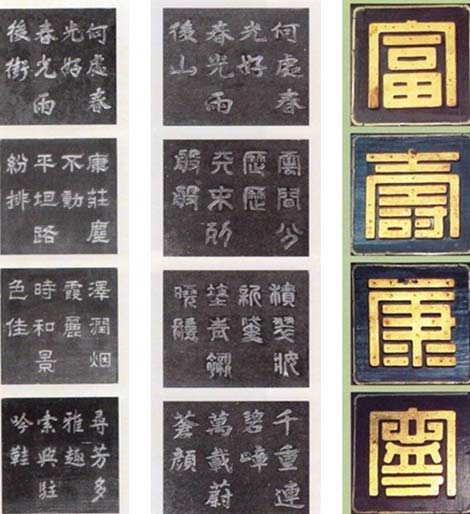 何處春
光好
春光雨
後街
康莊塵
不動
平坦路
紛排
澤潤烟
霞麗
時和景
色佳
尋芳多
雅趣
索興駐
吟鞋
何處春
光好
春光雨
後山
分
歷
歷
般
般
千重連
碧嶂
萬載蔚
蒼顏
富
壽
康
寧